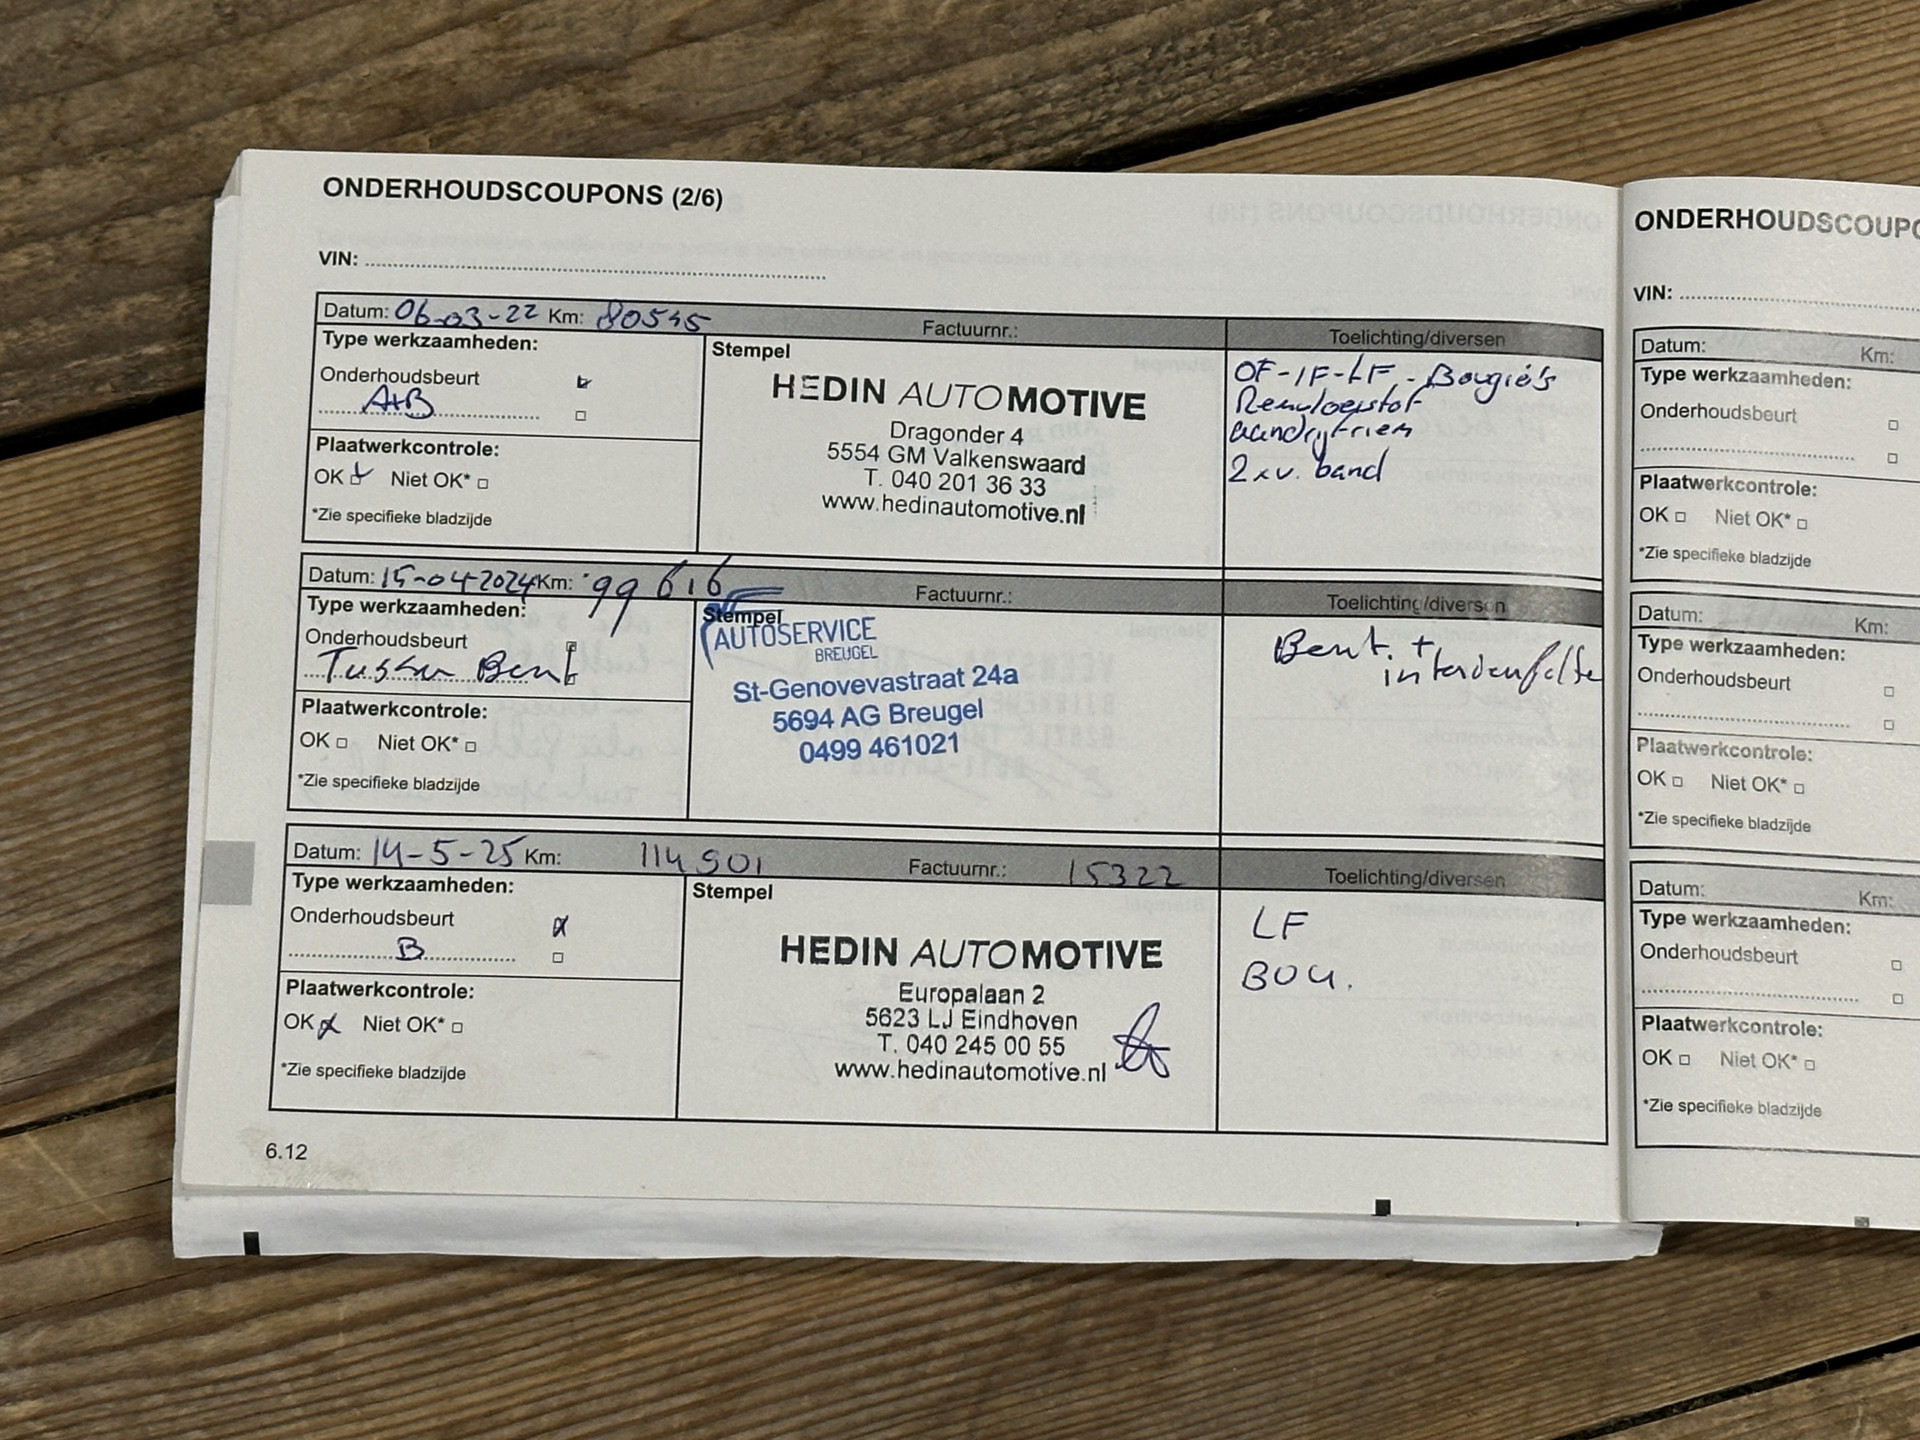 ONDERHOUDSCOUPONS (2/6)
VIN:
Datum: 06-03-22 Km: 80545 Factuurnr.: Toelichting/diversen
Type werkzaamheden:
Onderhoudsbeurt
A+B
Plaatwerkcontrole:
OK Niet OK*
*Zie specifieke bladzijde
Stempel
HEDIN AUTOMOTIVE
Dragonder 4
5554 GM Valkenswaard
T. 040 201 36 33
www.hedinautomotive.nl
OF-IF-LF - Bougie's
Remvloeistof
aandrijfriem
2 x v. band
Datum: 15-04-2024 Km: 99616 Factuurnr.: Toelichting/diversen
Type werkzaamheden:
Onderhoudsbeurt
Tussen Beurt
Plaatwerkcontrole:
OK Niet OK*
*Zie specifieke bladzijde
Stempel
AUTOSERVICE
BREUGEL
St-Genovevastraat 24a
5694 AG Breugel
0499 461021
Beurt. +
Datum: 14-5-25 Km: 114901 Factuurnr.: 15322 Toelichting/diversen
Type werkzaamheden:
Onderhoudsbeurt
B
Plaatwerkcontrole:
OK Niet OK*
*Zie specifieke bladzijde
Stempel
HEDIN AUTOMOTIVE
Europalaan 2
5623 LJ Eindhoven
T. 040 245 00 55
www.hedinautomotive.nl
LF
BOU.
6.12
ONDERHOUDSCOUPO
VIN:
Datum: Km:
Type werkzaamheden:
Onderhoudsbeurt
Plaatwerkcontrole:
OK Niet OK*
*Zie specifieke bladzijde
Datum: Km:
Type werkzaamheden:
Onderhoudsbeurt
Plaatwerkcontrole:
OK Niet OK*
*Zie specifieke bladzijde
Datum: Km:
Type werkzaamheden:
Onderhoudsbeurt
Plaatwerkcontrole:
OK Niet OK*
*Zie specifieke bladzijde